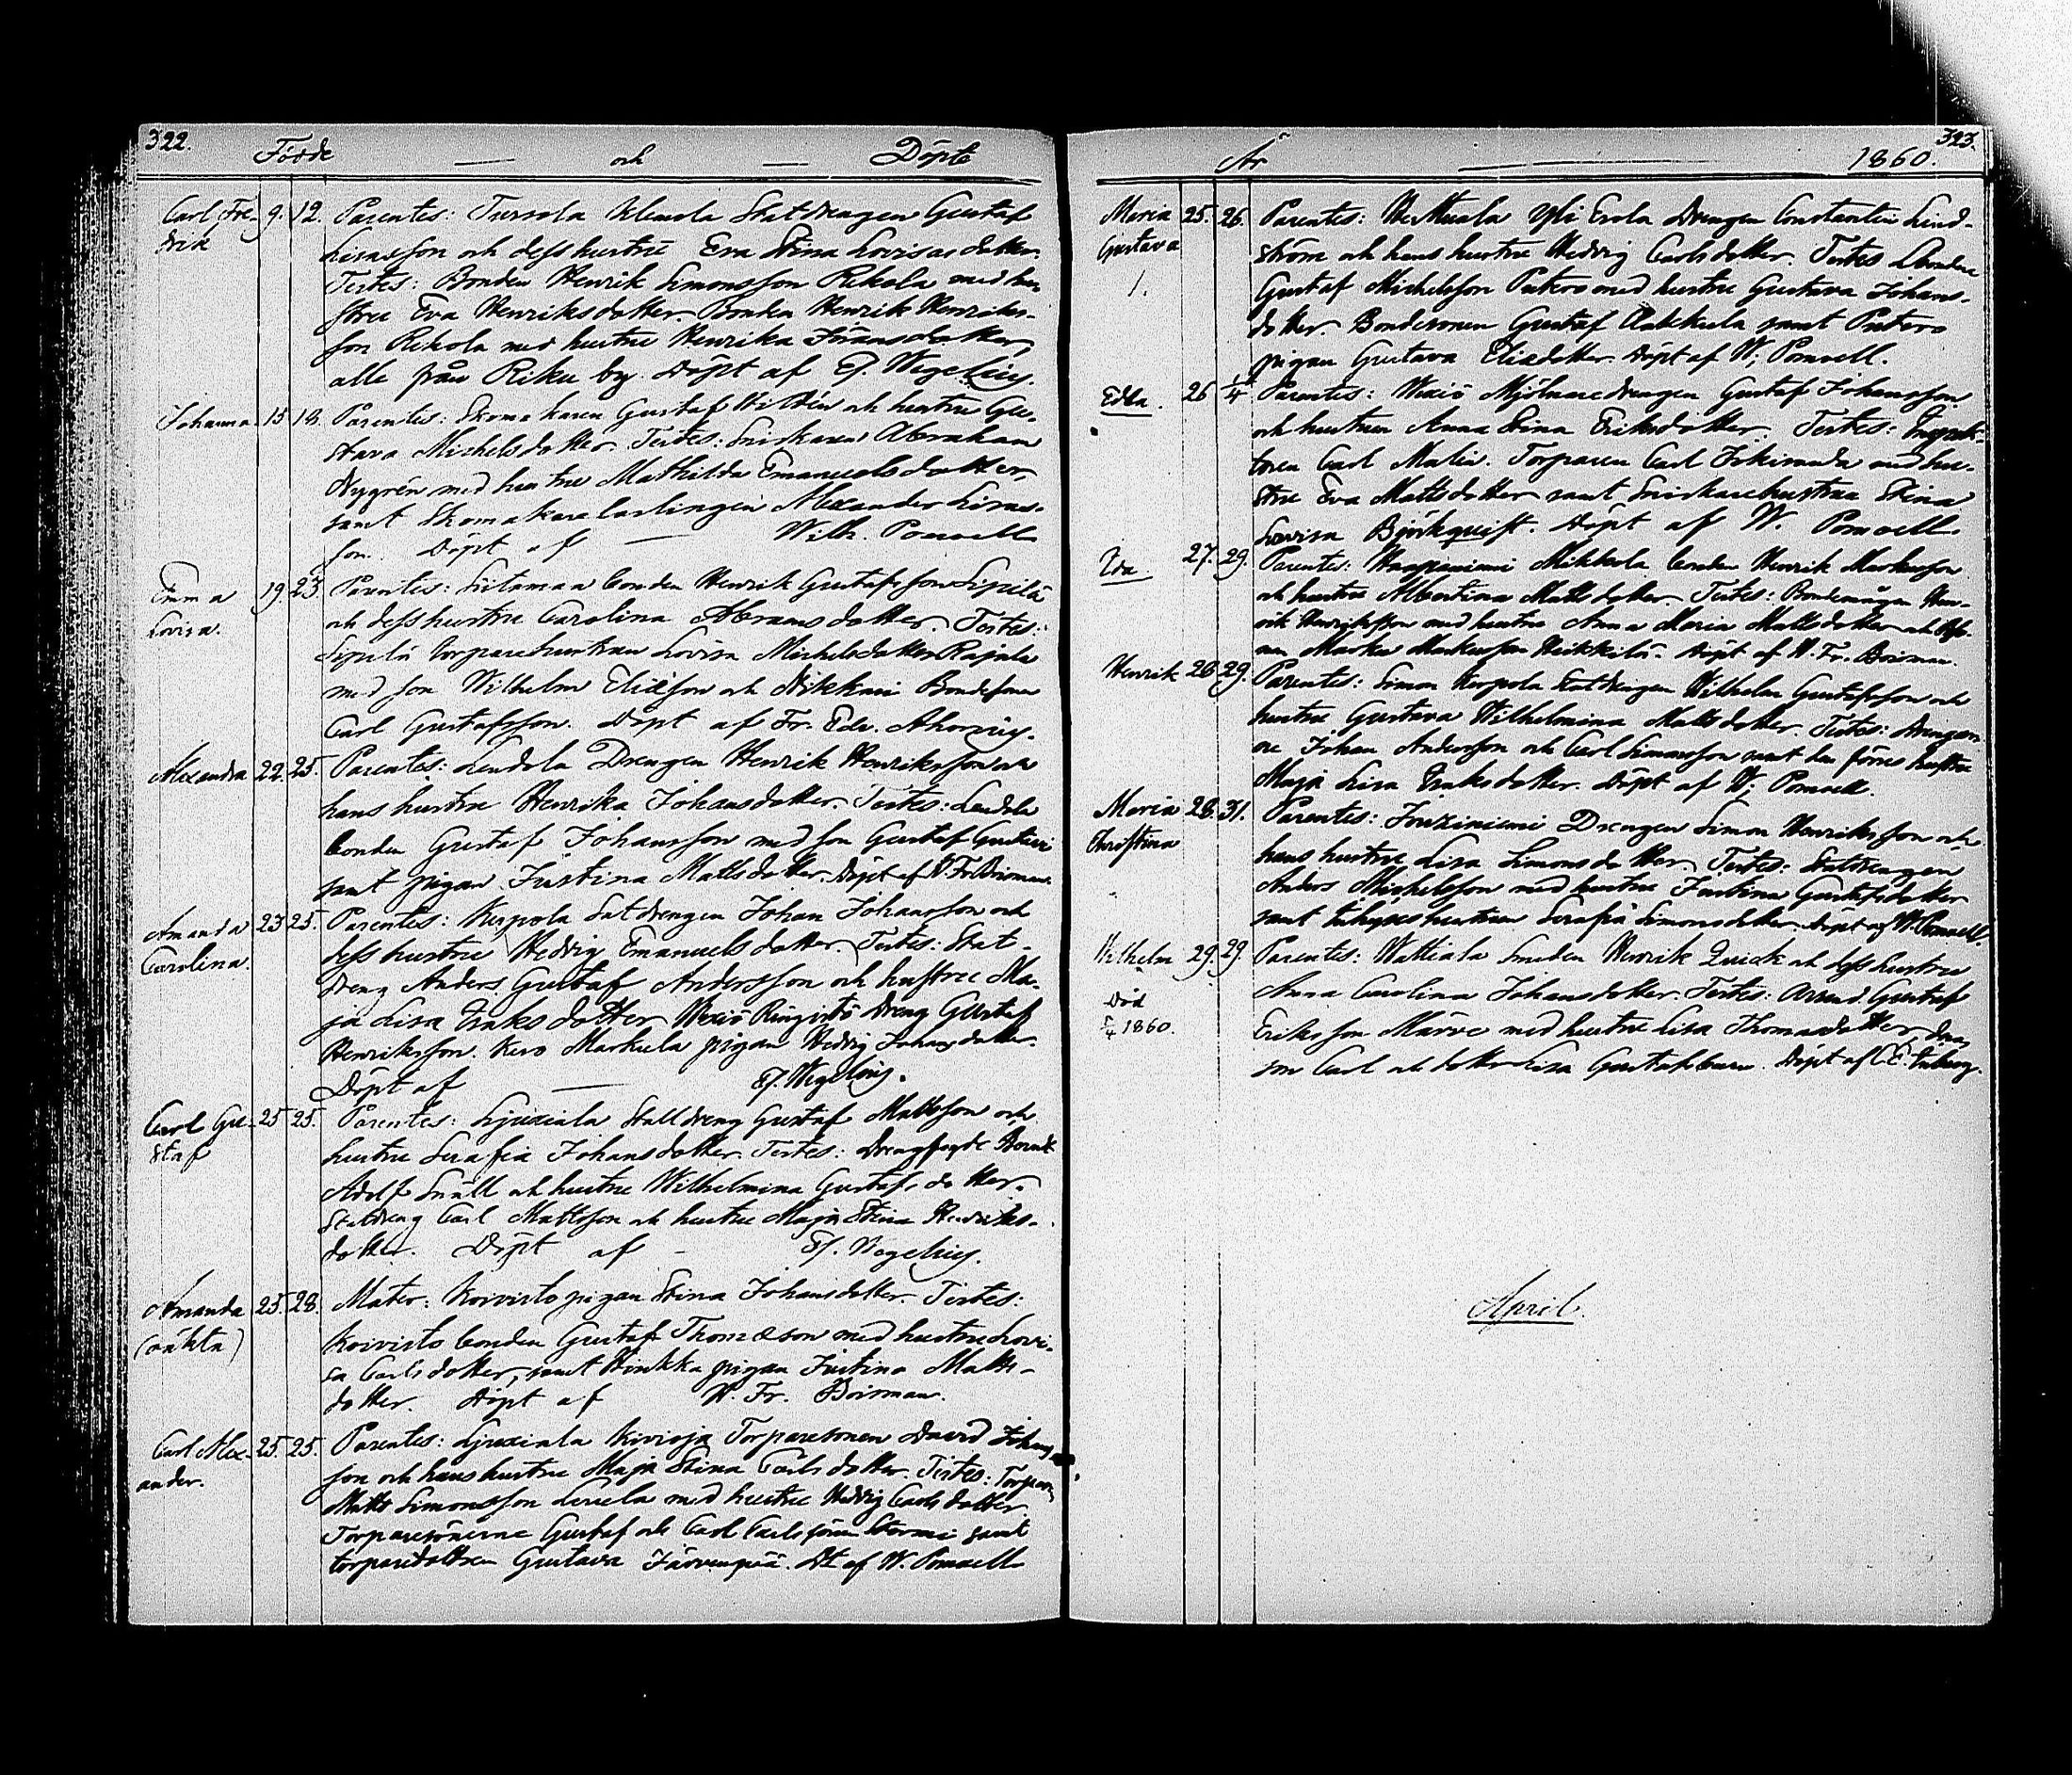 322.
Födde — och — Döpte
Carl Fre- 9. 12. Parentes: Tursola Statdrengen Gustaf
drik
och dess hustru Eva Stina Lovisasdotter.
Testes: Bonden Henrik Simonsson Rekola med hu-
stru Eva Henriksdotter. Bonden Henrik Henriks-
son Rekola med hustru Henrika Göransdotter,
alle från Riku by. Döpt af Ej. Wegelius.
Johanna 15 18. Parentes: Skomakaren Gustaf och hustru Gu-
stava Michelsdotter. Testes: Snickaren Abraham
Nygrén med hustru Mathilda Emanuelsdotter,
samt Skomakarelärlingen Alexander
son. Döpt af — Wilh. Ponsell
Emma 19. 23. Parentes: Liitamaa bonden Henrik Gustafsson Sipilä
Lovisa.
och dess hustru Carolina Abramsdotter. Testes:
Sipilä torparehustrun Lovisa Michelsdotter Rajala
med son Wilhelm Eliæson och Nikkari Bondesonen
Carl Gustafsson. Döpt af Fr. Edv. Ahonius.
Alexandra 22. 25. Parentes: Lendola Drengen Henrik Henriksson och
hans hustru Henrika Johansdotter. Testes: Lendola
bonden Gustaf Johansson med son Gustaf
samt pigan Justina Mattsdotter. Döpt af W. Fr. Boisman.
Amanda 23 25. Parentes: Kerpola Statdrengen Johan Johansson och
Carolina.
dess hustru Hedvig Emanuelsdotter. Testes: Stat-
dreng Anders Gustaf Andersson och hustru Ma-
ja Lisa Eriksdotter Wexiö dreng Gustaf
Henriksson. Kero Markula pigan Hedvig Johansdotter.
Döpt af — Ej. Wegelius.
Carl Gu- 25 25. Parentes: Ljuxiala Stalldreng Gustaf Mattsson och
staf
hustru Serafia Johansdotter. Testes: Drengfogde Berndt
Adolf Snäll och hustru Wilhelmina Gustafsdotter.
Statdreng Carl Mattsson och hustru Maja Stina Henriks-
dotter. Döpt af — Ej. Wegelius.
Amanda 25. 28. Mater: Koivisto pigan Stina Johansdotter. Testes:
(oäkta)
Koivisto bonden Gustaf Thomæson med hustru Lovi-
sa Carlsdotter, samt pigan Justina Matts-
dotter. Döpt af W. Fr. Boisman.
Carl Alex- 25. 25. Parentes: Ljuxiala Kivioja Torparesonen David Johans
ander.
son och hans hustru Maja Stina Carlsdotter. Testes: Torparen
Matts Simonsson med hustru Hedvig Carlsdotter
Torparesönerne Gustaf och Carl samt
torparedottren Gustava Järvenpää. Dt af W. Ponsell
323.
År — 1860.
Maria 25. 26. Parentes: Yli Erola Drengen Constantin Lind-
Gustava
ström och hans hustru Hedvig Carlsdotter. Testes
1.
Gustaf Michelsson Puters med hustru Gustava Johans-
dotter. Bondesonen Gustaf samt Puters
pigan Gustava Eliædotter. Döpt af W. Ponsell.
Edla. 26 1/4 Parentes: Wexiö Mjölnaredrengen Gustaf Johansson
och hustrun Anna Stina Eriksdotter. Testes: Inspek-
toren Carl Malin. Torparen Carl med hu-
stru Eva Mattsdotter samt Snickarehustrun Stina
Lovisa Björkqvist. Döpt af W. Ponsell
Ida 27. 29. Parentes: Haapaniemi Mikkola bonden Henrik Markusson
och hustru Albertina Mattsdotter. Testes: Hen-
rik Henriksson med hustru Anna Maria Mattsdotter och
Markus Markusson Heikkilä. Döpt af W. Fr. Boisman.
Henrik 28 29. Parentes: Simon Kerpola Statdrengen Wilhelm Gustafsson och
hustru Gustava Wilhelmina Mattsdotter. Testes: Drengar-
ne Johan Andersson och Carl Simonsson samt den förres hustru
Maja Lisa Eriksdotter. Döpt af W. Ponsell.
Maria 28. 31. Parentes: Jouziniemi Drengen Simon Henriksson och
Christina
hans hustru Lisa Simonsdotter. Testes: Statdrengen
Anders Michelsson med hustru Justina Gustafsdotter
samt Inhyseshustrun Serafia Simonsdotter. Döpt af W. Ponsell.
Wilhelm 29. 29. Parentes: Wattiala Smeden Henrik Quick och dess hustru
Död
Anna Carolina Johansdotter. Testes: Arrend. Gustaf
5/4 1860.
Eriksson Märve med hustru Lisa Thomasdotter, deras
son Carl och dotter Lisa Döpt af C. E.
April.